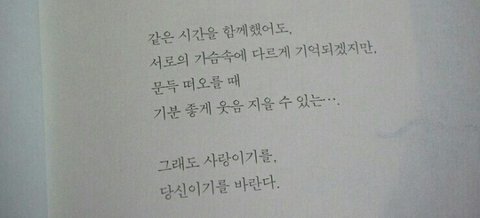 같은 시간을 함께했어도,
서로의 가슴속에 다르게 기억되겠지만,
문득 떠오를 때
기분 좋게 웃음 지을 수 있는….
그래도 사랑이기를,
당신이기를 바란다.